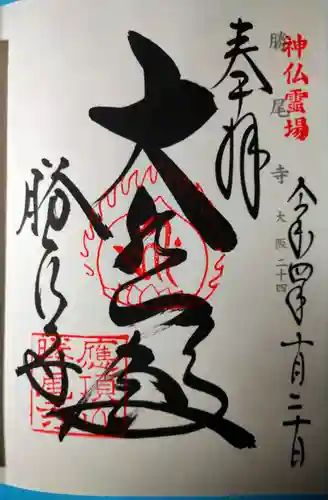 神仏霊場
勝尾寺
大阪二十四
奉拝
令和四年十月二十日
大悲殿
勝尾寺
應頂山
勝尾寺